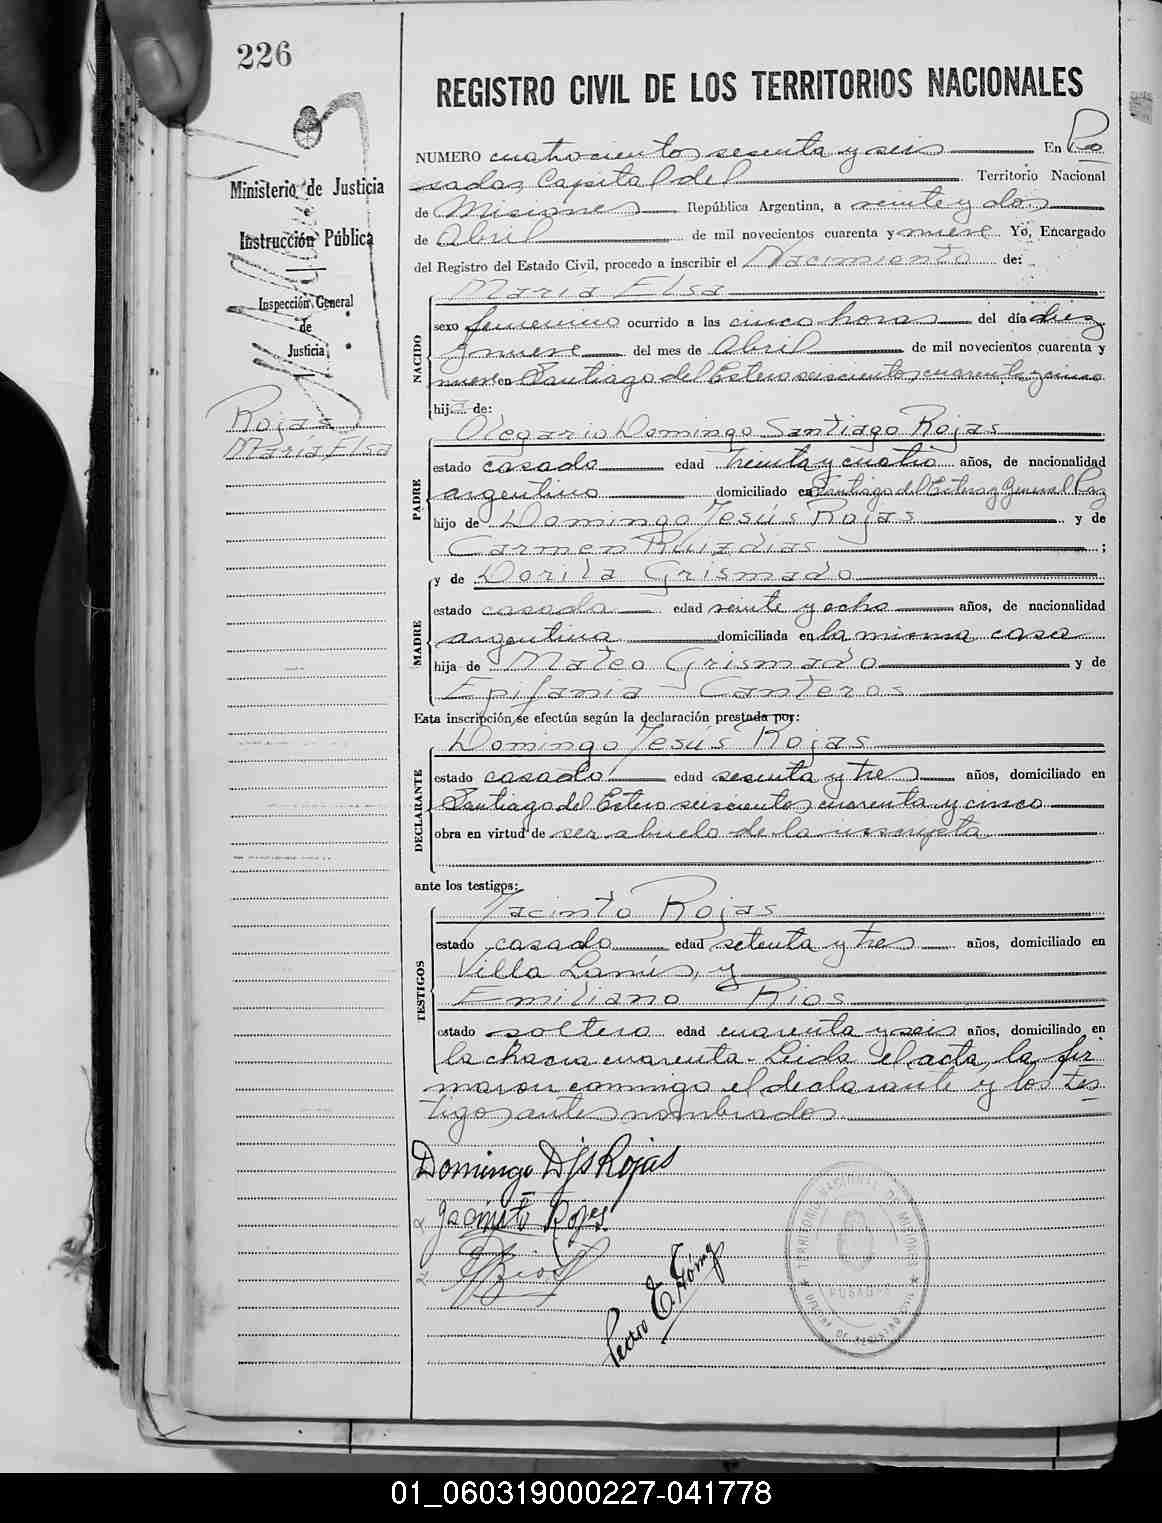 226
Ministerio de Justicia
e
Instrucción Pública
Inspección General
de
Justicia
Rojas
María Elsa
REGISTRO CIVIL DE LOS TERRITORIOS NACIONALES
NUMERO cuatrocientos sesenta y seis En Po
sadas Capital del Territorio Nacional
de Misiones República Argentina, a veinte y dos
de Abril de mil novecientos cuarenta y nueve Yo, Encargado
del Registro del Estado Civil, procedo a inscribir el Nacimiento de:
NACIDO
María Elsa
sexo femenino ocurrido a las cinco horas del día diez
y nueve del mes de Abril de mil novecientos cuarenta y
nueve en Santiago del Estero seiscientos cuarenta y cinco
hija de:
PADRE
Olegario Domingo Santiago Rojas
estado casado edad treinta y cuatro años, de nacionalidad
argentino domiciliado en Santiago del Estero y General Paz
hijo de Domingo Jesús Rojas y de
Carmen Ruizdias ;
MADRE
y de Dorila Grismado
estado casada edad veinte y ocho años, de nacionalidad
argentina domiciliada en la misma casa
hija de Mateo Grismado y de
Epifania Canteros
Esta inscripción se efectúa según la declaración prestada por:
DECLARANTE
Domingo Jesús Rojas
estado casado edad sesenta y tres años, domiciliado en
Santiago del Estero seiscientos cuarenta y cinco
obra en virtud de ser abuelo de la inscripta
ante los testigos:
TESTIGOS
Jacinto Rojas
estado casado edad setenta y tres años, domiciliado en
Villa Lanús, y
Emiliano Rios
estado soltero edad cuarenta y seis años, domiciliado en
la chacra cuarenta. Leida el acta, la fir
maron conmigo el declarante y los tes
tigos antes nombrados
Domingo Djs Rojas
Jacinto Rojas
ERios
Pedro E. Gómez
TERRITORIO NACIONAL DE MISIONES
POSADAS
01_060319000227-041778